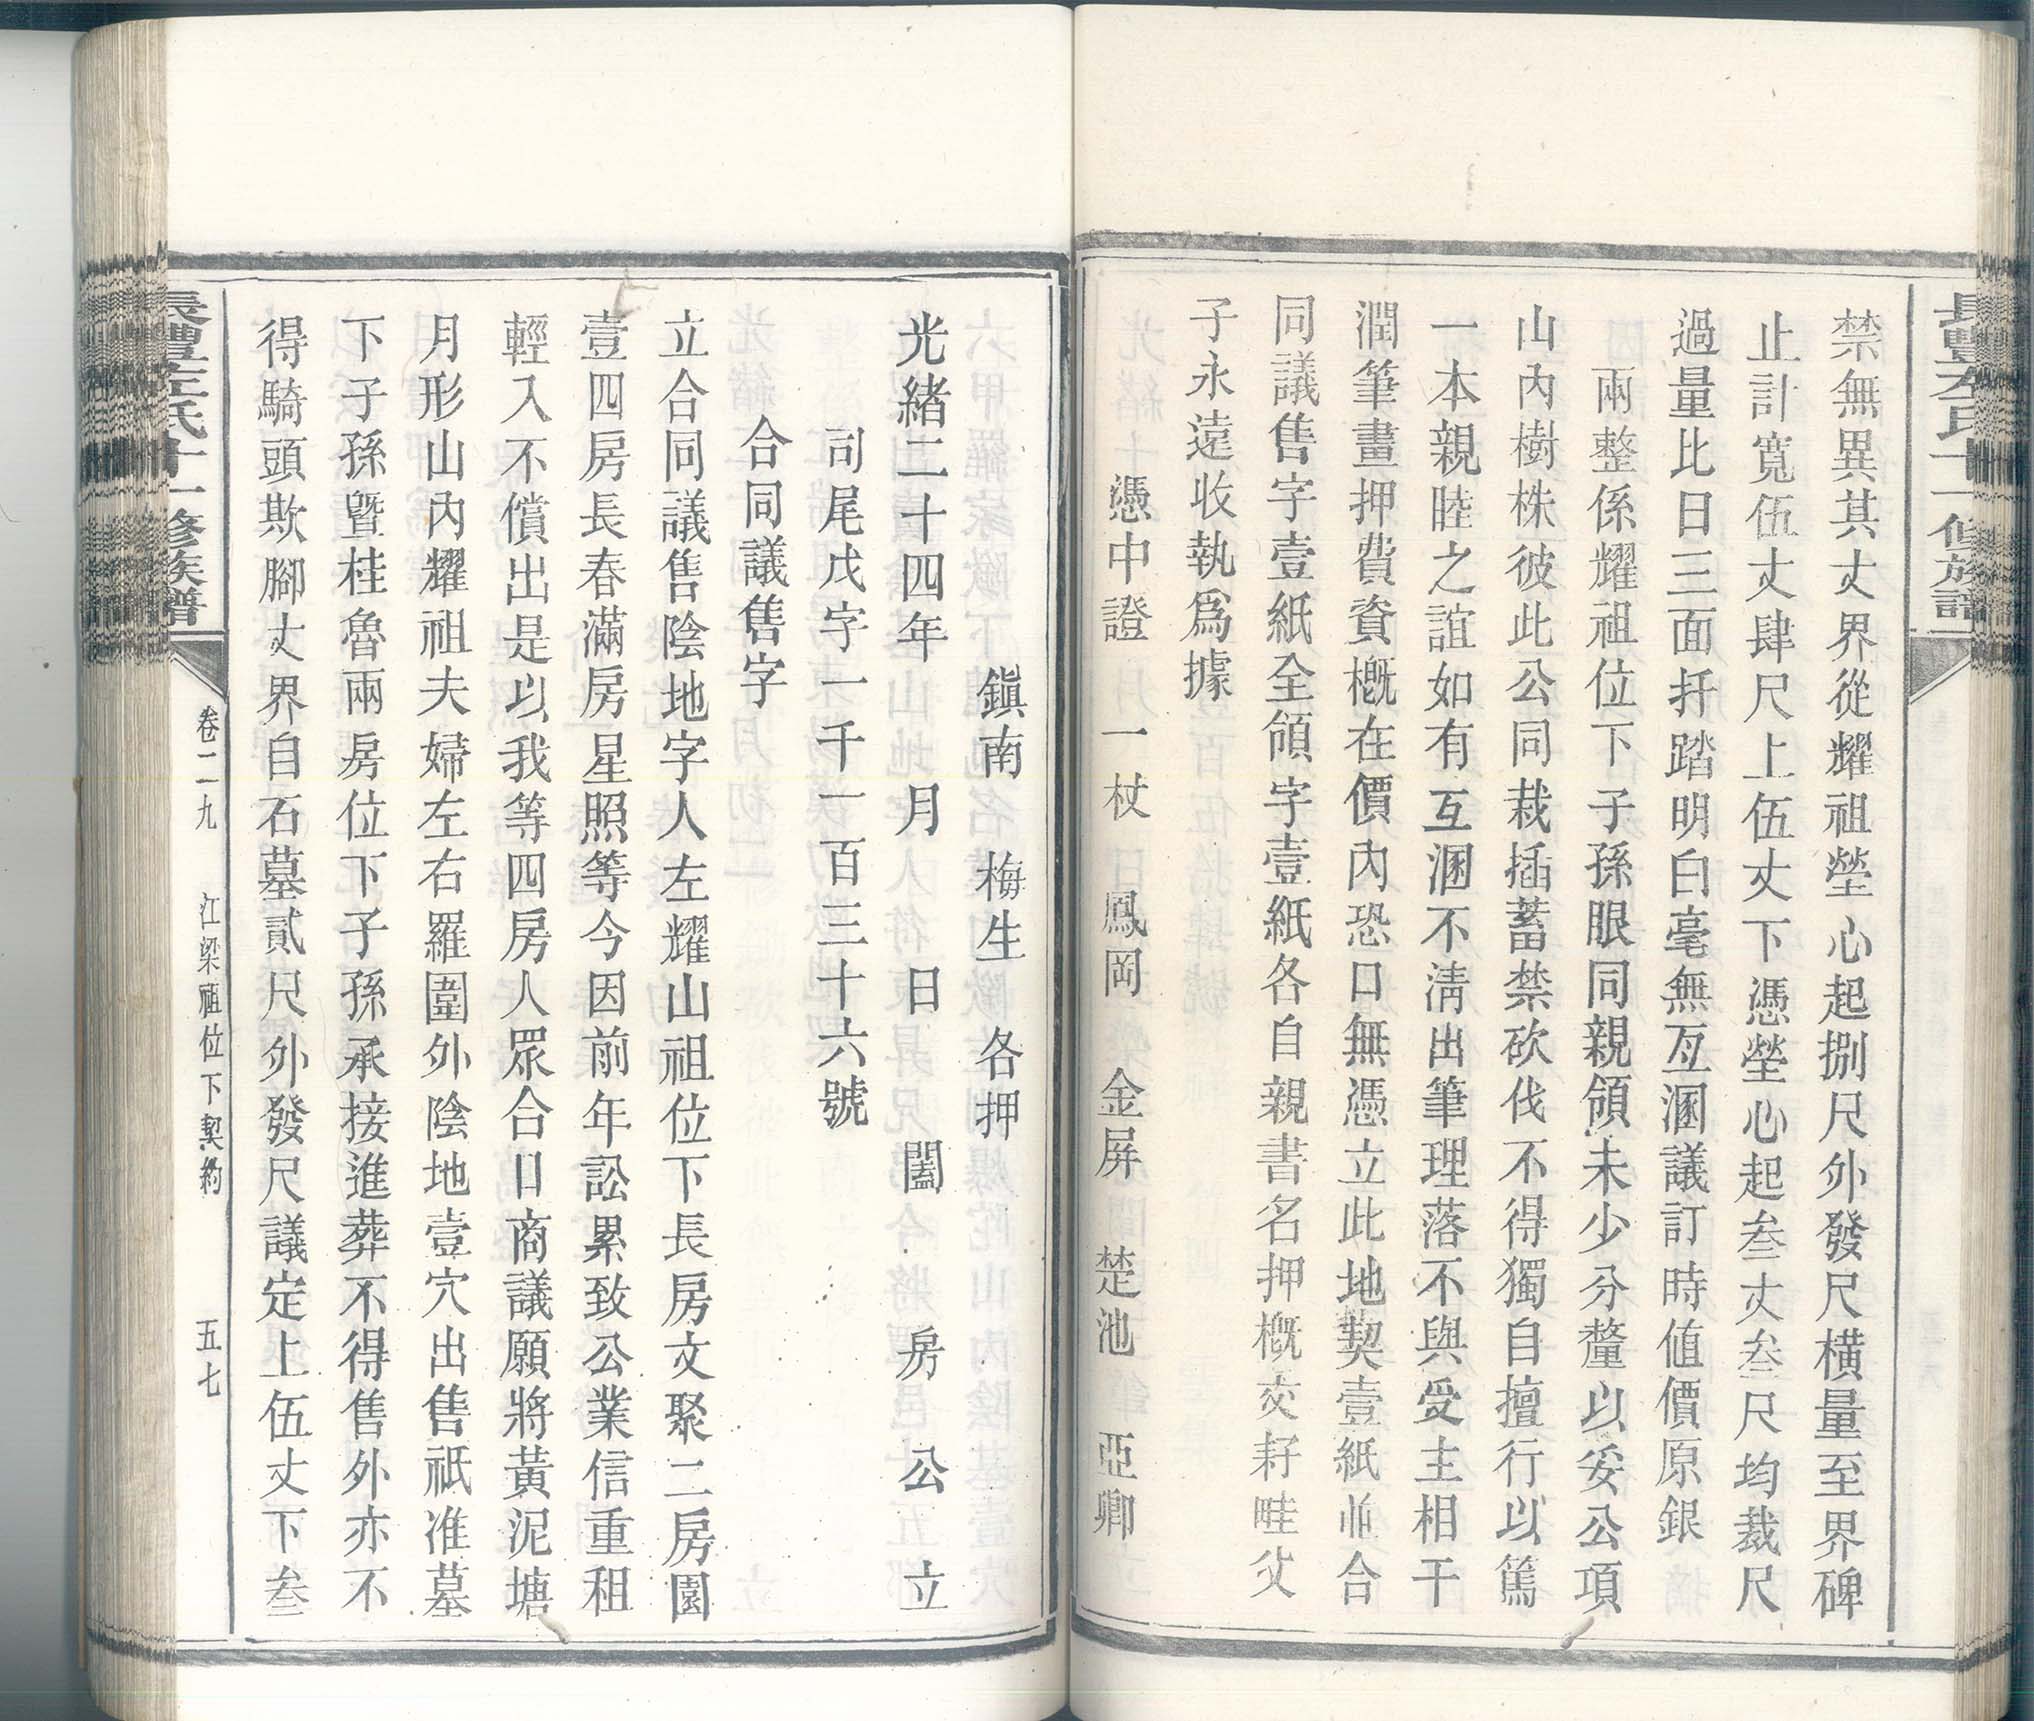 長豐左氏十一修族譜
禁無異其丈界從耀祖塋心起捌尺外發尺橫量至界碑
止計寬伍丈肆尺上伍丈下憑塋心起叁丈叁尺均裁尺
過量比日三面扦踏明白毫無互溷議訂時値價原銀
兩整係耀祖位下子孫眼同親領未少分釐以妥公項
山內樹株彼此公同栽插蓄禁砍伐不得獨自擅行以篤
一本親睦之誼如有互溷不淸出筆理落不與受主相干
潤筆畫押費資槪在價內恐口無憑立此地契壹紙並合
同議售字壹紙全領字壹紙各自親書名押槪交耔畦父
子永遠收執爲據
憑中證 一杖 鳳岡 金屏 楚池 亞卿
鎭南 梅生 各押
光緒二十四年 月 日 闔 房 公 立
司尾戊字一千一百三十六號
合同議售字
立合同議售陰地字人左耀山祖位下長房文聚二房園
壹四房長春滿房星照等今因前年訟累致公業信重租
輕入不償出是以我等四房人眾合口商議願將黃泥塘
月形山內耀祖夫婦左右羅圍外陰地壹穴出售祇准墓
下子孫曁桂魯兩房位下子孫承接進葬不得售外亦不
得騎頭欺腳丈界自石墓貳尺外發尺議定上伍丈下叁
長豐左氏十一修族譜
卷二九 江梁祖位下契約 五七